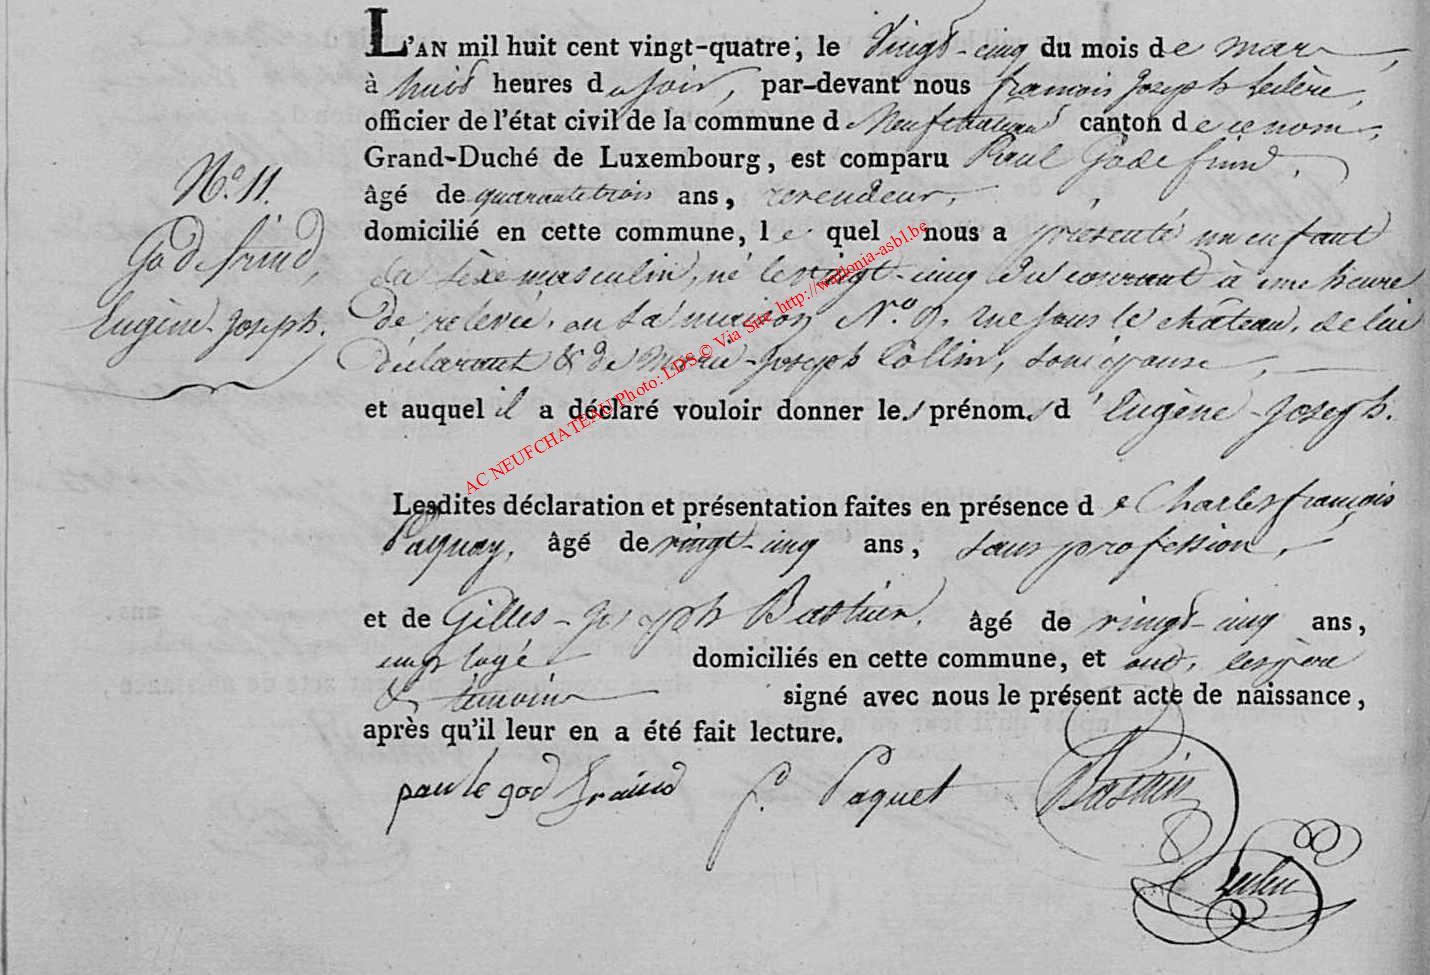 L'AN mil huit cent vingt-quatre, le Vingt-cinq du mois de mars,
à huit heures du soir, par-devant nous françois Joseph Leclère,
officier de l'état civil de la commune de Neufchateau canton de ce nom,
Grand-Duché de Luxembourg, est comparu Paul Godefrind,
N.º 11.
âgé de quarantetrois ans, revendeur,
Godefrind,
domicilié en cette commune, lequel nous a présenté un enfant
du sèxe masculin, né le vingt-cinq du courant à une heure
Eugène-Joseph.
de relevée, en sa maison N.º 9, rue sous le chateau, de lui
déclarant & de Marie-Joseph Collin, son épouse,
et auquel il a déclaré vouloir donner les prénoms d'Eugène-Joseph.
AC NEUFCHATEAU Photo: LDS © Via Site http://wallonia-asbl.be
Lesdites déclaration et présentation faites en présence de Charles françois
âgé de vingt-cinq ans, sans profession,
et de Gilles-Joseph Bastien, âgé de vingt-cinq ans,
employé domiciliés en cette commune, et ont, les père
& témoins signé avec nous le présent acte de naissance,
après qu'il leur en a été fait lecture.
paul le god fraind f. Paquet Bastien
Leclère